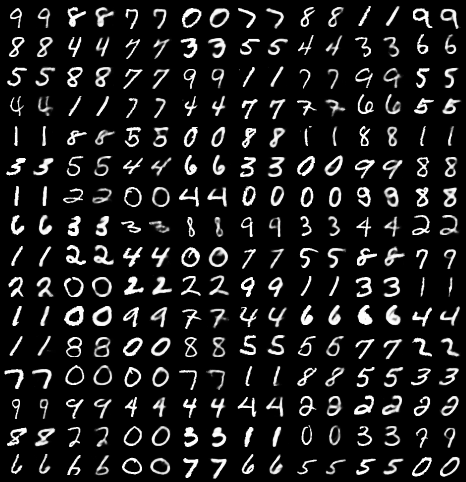 9 9 8 8 7 7 0 0 7 7 8 8 1 1 9 9
8 8 4 4 7 7 3 3 5 5 4 4 3 3 6 6
5 5 8 8 7 7 9 9 1 1 7 7 9 9 5 5
4 4 1 1 7 7 4 4 7 7 7 7 6 6 5 5
1 1 8 8 5 5 0 0 8 8 1 1 8 8 1 1
3 3 5 5 4 4 6 6 3 3 0 0 9 9 8 8
1 1 2 2 0 0 4 4 0 0 0 0 9 9 8 8
6 6 3 3 3 3 8 8 9 9 3 3 4 4 2 2
1 1 2 2 4 4 0 0 7 7 5 5 8 8 7 9
2 2 0 0 2 2 2 2 9 9 1 1 3 3 1 1
1 1 0 0 9 9 7 7 4 4 6 6 6 6 4 4
1 1 8 8 0 0 8 8 5 5 5 6 7 7 2 2
7 7 0 0 0 0 7 7 1 1 8 8 5 5 3 3
9 9 9 9 4 4 4 4 4 4 2 2 2 2 2 2
8 8 2 2 0 0 3 3 1 1 0 0 3 3 7 9
6 6 6 6 0 0 7 7 6 6 5 5 5 5 0 0